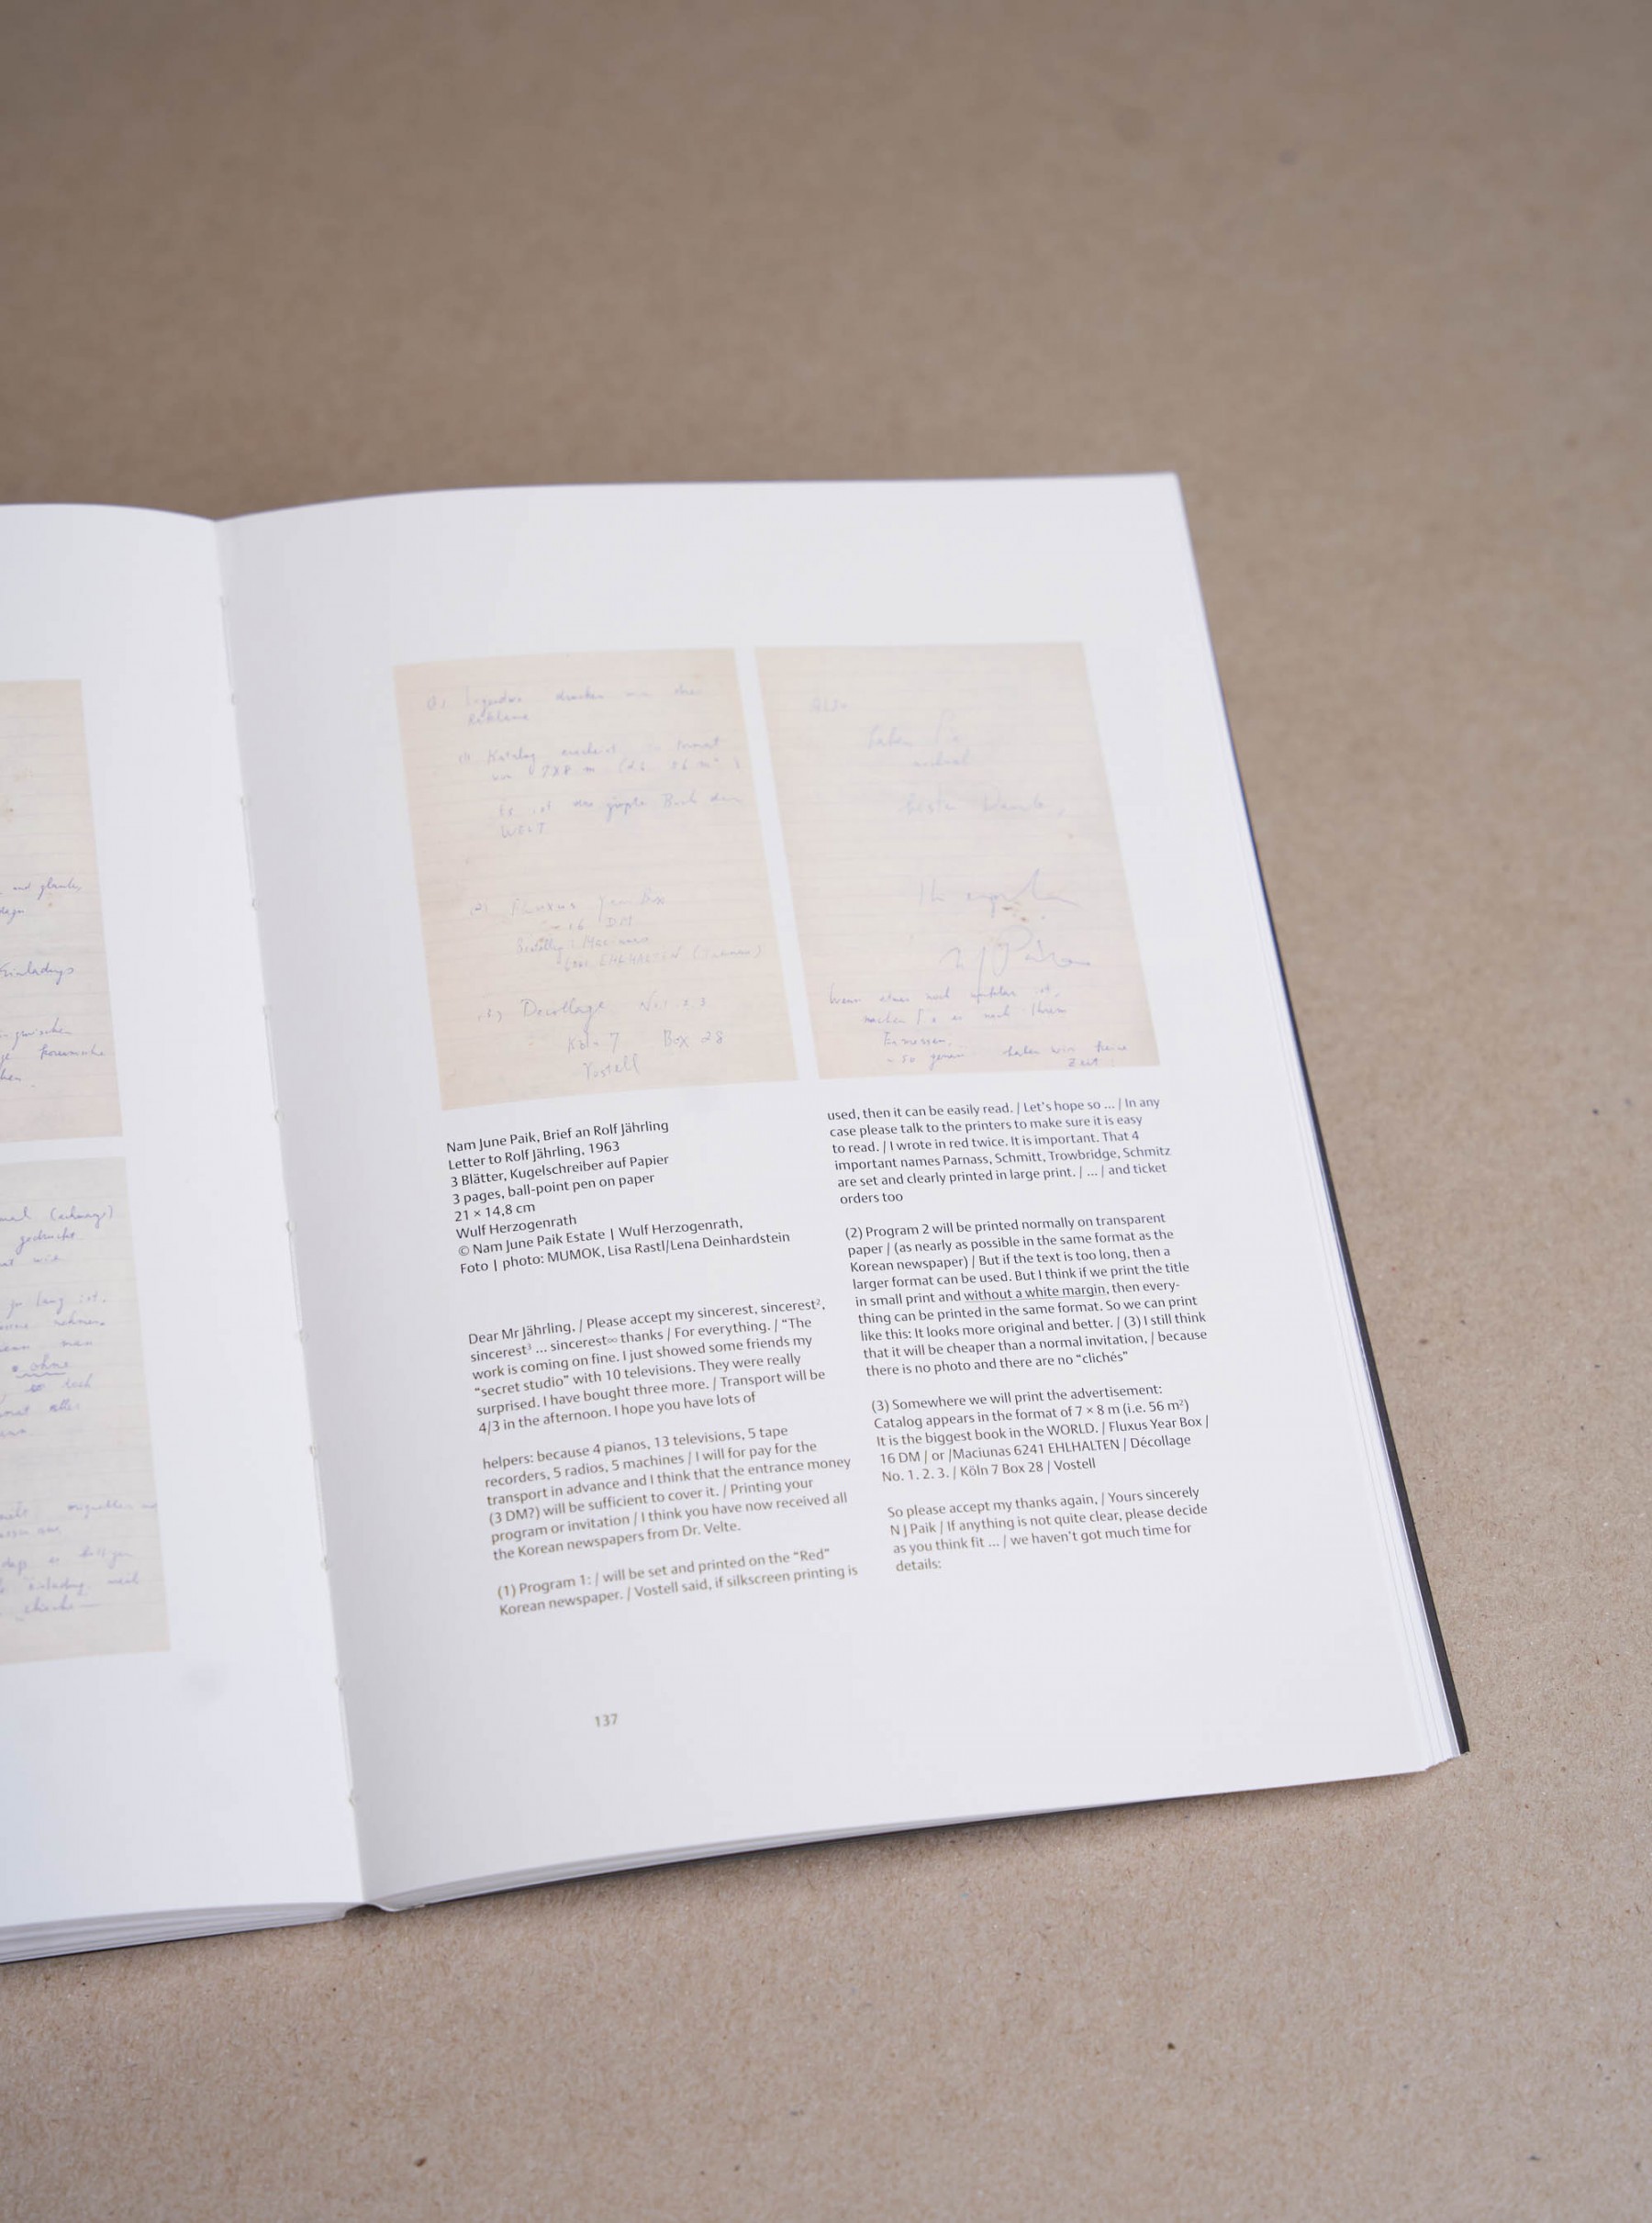 und glaube,
Einladungs
inzwischen
koreanische
gedruckt
zu lang ist.
ohne
Einladung weil
Irgendwo drucken wir die
Reklame
Katalog erscheint in Format
von 7x8 m (d.h. 56 m²)
Es ist das größte Buch der
WELT
Fluxus Year Box
16 DM
Bestellung: Maciunas
6241 EHLHALTEN (Taunus)
Decollage No. 1. 2. 3.
Köln 7 Box 28
Vostell
Also
haben Sie
nochmal
besten Dank,
Ihr ergebener
N J Paik
Wenn etwas noch unklar ist,
machen Sie es nach Ihrem
Ermessen.
– so genau haben wir keine
Zeit!
Nam June Paik, Brief an Rolf Jährling
Letter to Rolf Jährling, 1963
3 Blätter, Kugelschreiber auf Papier
3 pages, ball-point pen on paper
21 × 14,8 cm
Wulf Herzogenrath
© Nam June Paik Estate | Wulf Herzogenrath,
Foto | photo: MUMOK, Lisa Rastl/Lena Deinhardstein
Dear Mr Jährling, / Please accept my sincerest, sincerest²,
sincerest³ ... sincerest∞ thanks / For everything. / “The
work is coming on fine. I just showed some friends my
“secret studio” with 10 televisions. They were really
surprised. I have bought three more. / Transport will be
4/3 in the afternoon. I hope you have lots of
helpers: because 4 pianos, 13 televisions, 5 tape
recorders, 5 radios, 5 machines / I will for pay for the
transport in advance and I think that the entrance money
(3 DM?) will be sufficient to cover it. / Printing your
program or invitation / I think you have now received all
the Korean newspapers from Dr. Velte.
(1) Program 1: / will be set and printed on the “Red”
Korean newspaper. / Vostell said, if silkscreen printing is
used, then it can be easily read. / Let’s hope so ... / In any
case please talk to the printers to make sure it is easy
to read. / I wrote in red twice. It is important. That 4
important names Parnass, Schmitt, Trowbridge, Schmitz
are set and clearly printed in large print. / ... / and ticket
orders too
(2) Program 2 will be printed normally on transparent
paper / (as nearly as possible in the same format as the
Korean newspaper) / But if the text is too long, then a
larger format can be used. But I think if we print the title
in small print and without a white margin, then every-
thing can be printed in the same format. So we can print
like this: It looks more original and better. / (3) I still think
that it will be cheaper than a normal invitation, / because
there is no photo and there are no “clichés”
(3) Somewhere we will print the advertisement:
Catalog appears in the format of 7 × 8 m (i.e. 56 m²)
It is the biggest book in the WORLD. / Fluxus Year Box /
16 DM / or /Maciunas 6241 EHLHALTEN / Décollage
No. 1. 2. 3. / Köln 7 Box 28 / Vostell
So please accept my thanks again, / Yours sincerely
N J Paik / If anything is not quite clear, please decide
as you think fit ... / we haven’t got much time for
details:
137